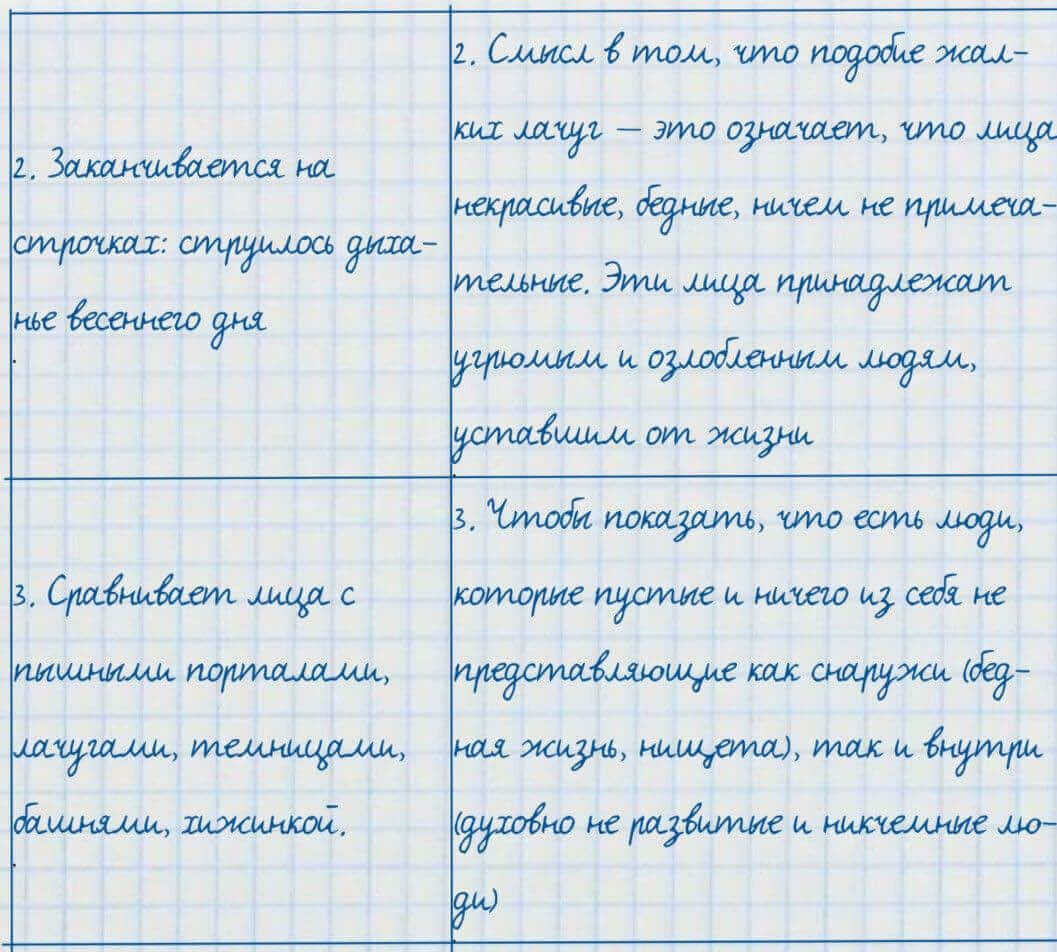 2. Заканчивается на
строчках: струилось дыха-
нье весеннего дня
.
2. Смысл в том, что подобие жал-
ких лачуг – это означает, что лица
некрасивые, бедные, ничем не примеча-
тельные. Эти лица принадлежат
угрюмым и озлобленным людям,
уставшим от жизни
3. Сравнивает лица с
пышными порталами,
лачугами, темницами,
башнями, хижинкой.
.
3. Чтобы показать, что есть люди,
которые пустые и ничего из себя не
представляющие как снаружи (бед-
ная жизнь, нищета), так и внутри
(духовно не развитые и никчемные лю-
ди)